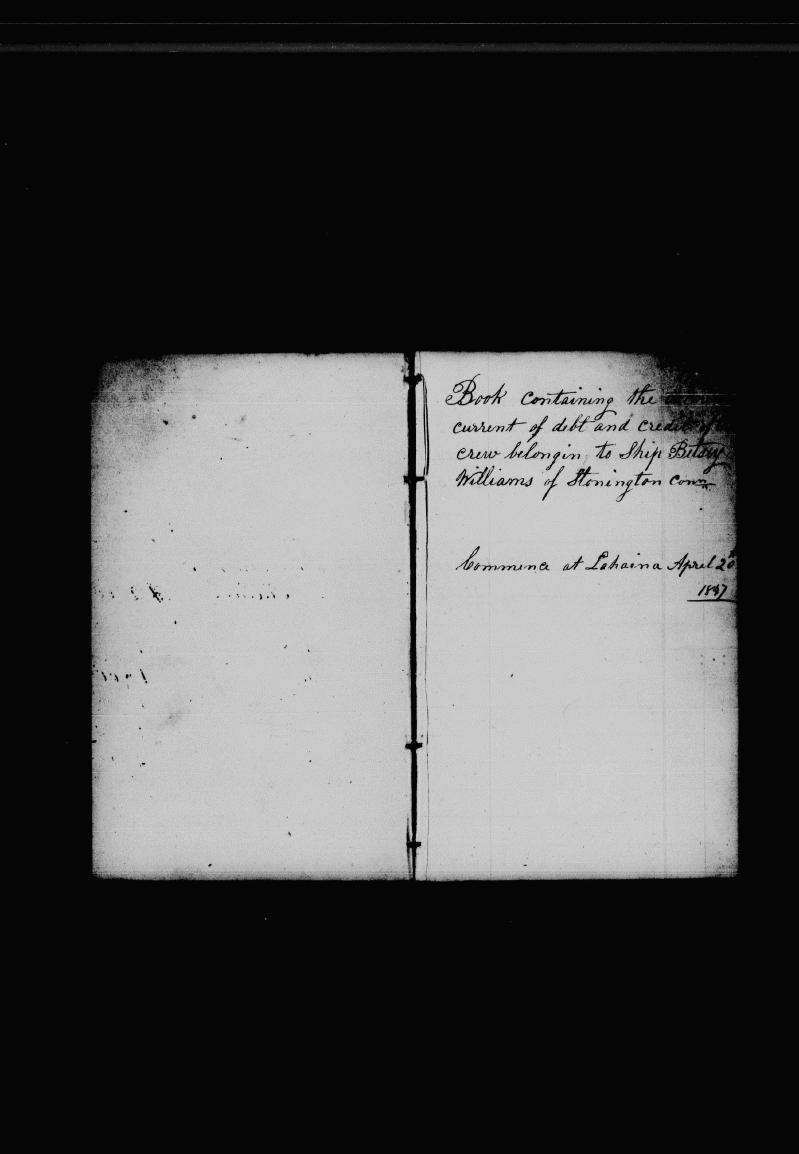 Book containing the
current of debt and credit of
crew belongin to Ship Betsey
Williams of Stonington Conn
Commence at Lahaina April 20th